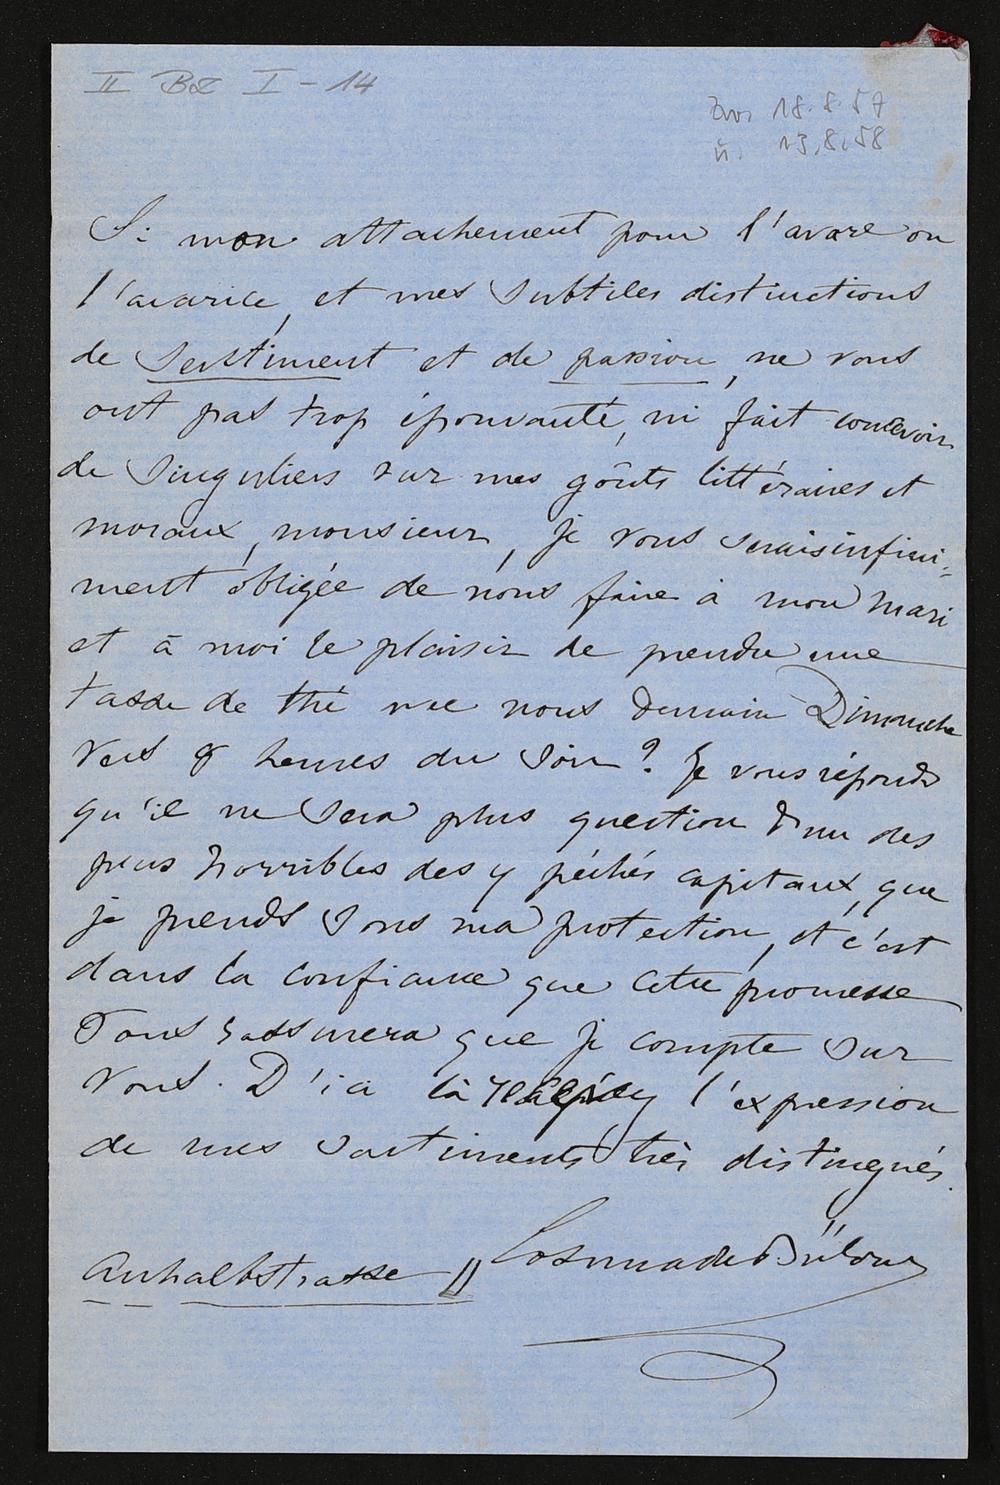 II Bz I - 14
zw. 18.8.57
u. 13.8.58
Si mon attachement pour l'avare ou
l'avarice, et mes subtiles distinctions
de sentiment et de passion, ne vous
ont pas trop épouvanté, ni fait concevoir
de singuliers sur mes goûts littéraires et
moraux, monsieur, je vous serais infini-
ment obligée de nous faire à mon mari
et à moi le plaisir de prendre une
tasse de thé avec nous demain Dimanche
vers 8 heures du soir? Je vous réponds
qu'il ne sera plus question d'un des
plus horribles des 7 péchés capitaux, que
je prends sous ma protection, et c'est
dans la confiance que cette promesse
vous rassurera que je compte sur
vous. D'ici là l'expression
de mes sentiments très distingués.
Cosima de Bülow
Anhaltstrasse 11